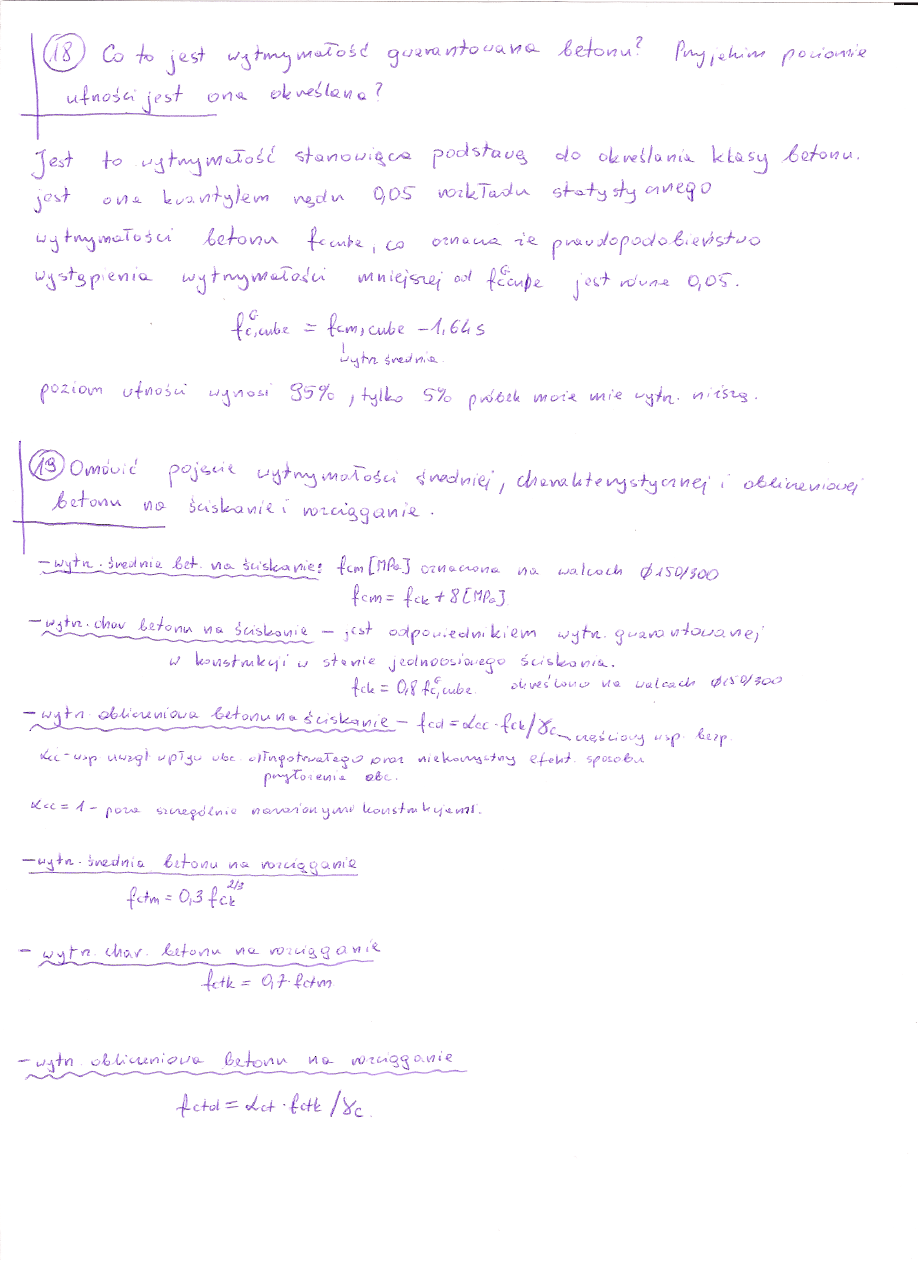 18 Co to jest wytrzymałość gwarantowana betonu? Przy jakim poziomie
ufności jest ona określana?
Jest to wytrzymałość stanowiąca podstawę do określania klasy betonu.
jest ona kwantylem rzędu 0,05 rozkładu statystycznego
wytrzymałości betonu fc,cube, co oznacza że prawdopodobieństwo
wystąpienia wytrzymałości mniejszej od f^G c,cube jest równe 0,05.
f^G c,cube = fcm,cube - 1,64 s
wytrz średnia
poziom ufności wynosi 95%, tylko 5% próbek może mie wytrz. niższą.
19 Omówić pojęcie wytrzymałości średniej, charakterystycznej i obliczeniowej
betonu na ściskanie i rozciąganie.
- wytrz. średnia bet. na ściskanie: fcm [MPa] oznaczona na walcach Ø150/300
fcm = fck + 8 [MPa]
- wytrz. char betonu na ściskanie - jest odpowiednikiem wytrz. gwarantowanej
w konstrukcji w stanie jednoosiowego ściskania.
fck = 0,8 f^G c,cube. określono na walcach Ø150/300
- wytrz obliczeniowa betonu na ściskanie - fcd = αcc · fck/γc częściowy wsp. bezp.
αcc - wsp uwzgl wpływu obc. długotrwałego oraz niekorzystny efekt. sposobu
przyłożenia obc.
αcc = 1 - poza szczególnie narażonymi konstrukcjami.
- wytrz. średnia betonu na rozciąganie
fctm = 0,3 fck^2/3
- wytrz. char. betonu na rozciąganie
fctk = 0,7 · fctm
- wytrz obliczeniowa betonu na rozciąganie
fctd = αct · fctk /γc.